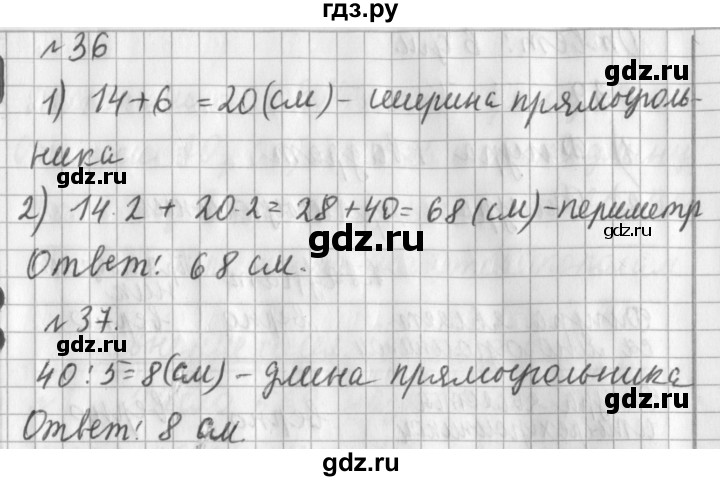 гдз.ру
№36
1) 14+6 =20(см) – ширина прямоуголь-
ника
2) 14·2 + 20·2 = 28+40= 68(см)–периметр
Ответ: 68 см.
№37.
40:5=8(см) – длина прямоугольника
Ответ: 8 см
gdz.ru
gdz.ru
gdz.ru
gdz.ru
gdz.ru
gdz.ru
gdz.ru
gdz.ru
gdz.ru